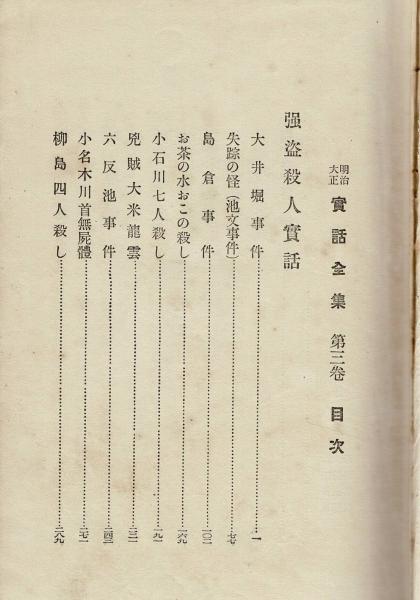 明治大正 實話全集 第三卷 目次
强盜殺人實話
大井堀事件……一
失踪の怪(池文事件)……七七
島倉事件……一〇一
お茶の水おこの殺し……一六九
小石川七人殺し……一九一
兇賊大米龍雲……二三一
六反池事件……二四三
小名木川首無屍體……二七一
柳島四人殺し……二八九